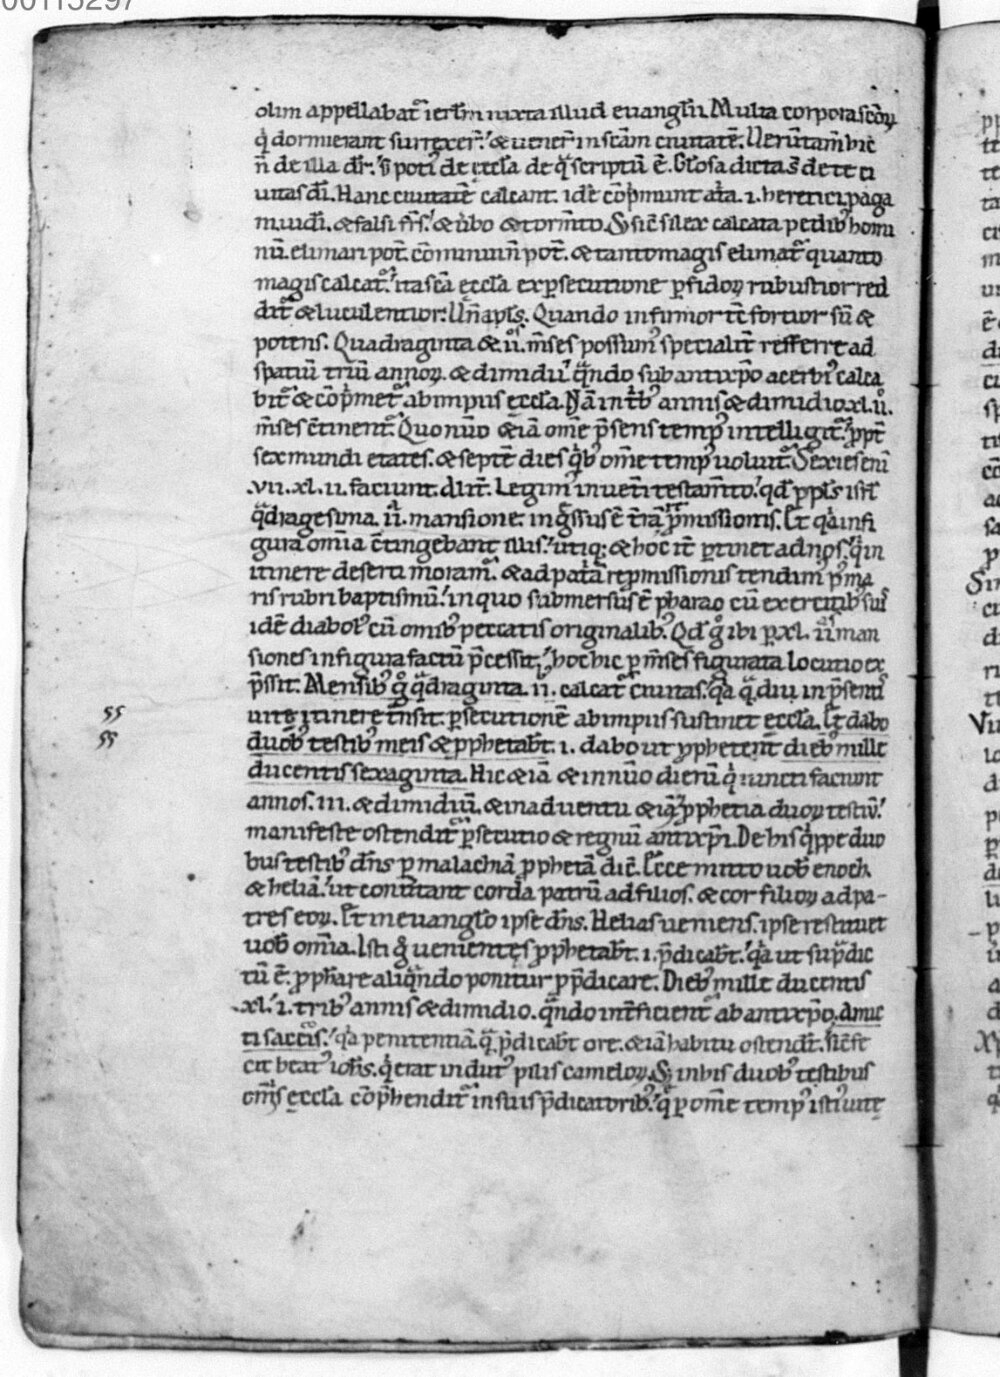 00115297
olim appellabat᷑ ierl̄m iuxta illud euangl̄ii. Multa corpora sc̄oꝝ
q̇ dormierant surrexer̄.' & uener̄ in sc̄am ciuitatē. Ueru̅tam̅ hic
n̄ de illa dr̄. s; poti᷒ de ęccl̄a de q̄ scriptū ē. Gl̄osa dicta s̄ de te ci
uitas dī. Hanc ciuitatē calcant. idē cōp̄munt at̄a. i. heretici, paga
ni, iudī. & falsi fr̄s.' & ūbo & torm̄to. S; sic̄ silex calcata pedib᷒ homi
nū. elimari pot̄. cōminui n̄ pot̄. & tanto magis elimat᷑ quanto
magis calcat᷑.' ita sc̄a ęccl̄a ex ꝑsecutione ꝑfidoꝝ rubustior red
dit᷑ & luculentior. Un̄ apl̄s. Quando infirmor tc̄ fortior sū &
potens. Quadraginta & .ii. m̄ses possum᷒ specialit̄ refferre ad
spatiū triū annoꝝ. & dimidii.' q̄ndo sub antixp̄o acerbi᷒ calca
bit᷑ & cōp̄met᷑ ab impiis ęccl̄a. Nā in trib᷒ annis & dimidio .xl.ii.
m̄ses c̄tinent᷑. Quo nūo & iā om̄e p̄sens temp᷒ intelligit᷑.' ppt̄
sex mundi etates. & septē dies q̇b᷒ om̄e temp᷒ uoluit᷑. Sexies eni̅
.vii. xl.ii. faciunt. Legim᷒ in uet̄i testam̄to.' qd̄ ppl̄s isrl̄
q̄dragesima .ii. mansione. ingssus ē t̄rā p̄missionis. Et q̇a in fi
gura om̄ia c̄tingebant illis.' utiq; & hoc it̄ ꝑtinet ad nos.' q̇ in
itinere deserti moram᷑. & ad pat̄ā rep̄missionis tendim᷒ p᷒ ma
ris rubri baptismū.' in quo submersus ē pharao cū exercitib᷒ suis
idē diabol᷒ cū omib᷒ peccatis originalib᷒. Qd̄ g̊ ibi ꝑ .xl.ii. man
siones in figura factū p̄cessit.' hoc hic ꝑ m̄ses figurata locutio ex
p̄ssit. Mensib᷒ g̊ q̄draginta .ii. calcat᷑ ciuitas.' q̇a q̄ diu in p̄senti
uitę itinere t̄nsit. ꝑsecutionē ab impiis sustinet ęccl̄a. Et dabo
duob᷒ testib᷒ meis & pphetab̄t. i. dabo ut pphetent dieb᷒ mille
ducentis sexaginta. Hic & iā & in nūo dierū q̇ iuncti faciunt
annos .iii. & dimidiū. & in aduentu & in pphetia duoꝝ testiū.'
manifeste ostendit᷑ ꝑsecutio & regnū antixp̄i. De his q̇ppe duo
bus testib᷒ dn̄s ꝑ malachiā pphetā dic̄. Ecce mitto uob̄ enoch
& heliā.' ut conu̅tant corda patrū ad filios. & cor filioꝝ ad pa-
tres eoꝝ. Et in euangl̄o ipse dn̄s. Helias ueniens. ipse restituet
uob̄ om̄ia. Isti g̊ uenientes pphetab̄t. i. p̄dicab̄t.' q̇a ut sup̄dic
tū ē. ppharē aliq̄ndo ponitur p p̄dicare. Dieb᷒ mille ducentis
.xl.' i. trib᷒ annis & dimidio. q̄ndo int̄ficient᷑ ab antixp̄o. Amic
ti saccis.' q̇a penitentiā q̄ p̄dicab̄t ore. & iā habitu ostend̄t. sic̄ fe
cit beat᷒ ioh̄s. q̇ erat indut᷒ pilis cameloꝝ. S; in his duob᷒ testibus
om̄s ęccl̄a cōp̄hendit᷑ in suis p̄dicatorib᷒.' q̄ ꝑ om̄e temp᷒ isti᷒ uitę